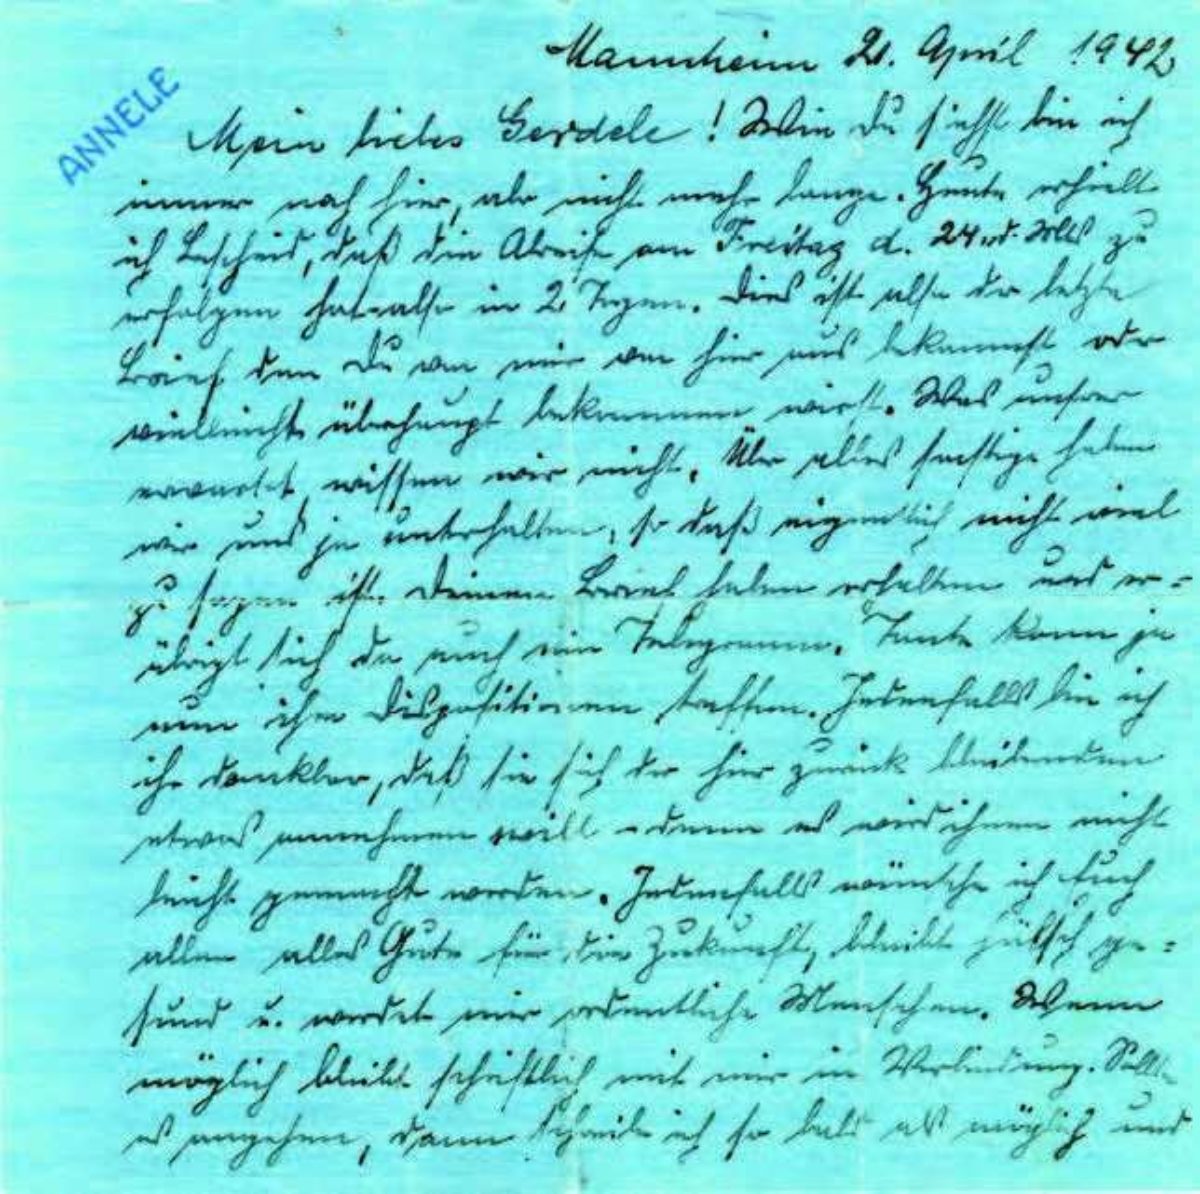 ANNELE
Mannheim 21. April 1942
Mein liebes Gerdele! Wie Du siehst bin ich
immer noch hier, aber nicht mehr lange. Heute erhielt
ich Bescheid, daß die Abreise am Freitag d. 24. d. Mts zu
erfolgen hat - also in 2 Tagen. Dies ist also der letzte
Brief den Du von mir von hier aus bekommst oder
vielleicht überhaupt bekommen wirst. Was unserer
erwartet, wissen wir nicht. Über alles sonstige haben
wir uns ja unterhalten, so daß eigentlich nicht viel
zu sagen ist. Deinen Brief haben erhalten und er=
übrigt sich da auch ein Telegramm. Tante kann ja
nun ihre Dispositionen treffen. Jedenfalls bin ich
ihr dankbar, daß sie sich der hier zurück bleibenden
etwas annehmen will - denn es wird ihnen nicht
leicht gemacht werden. Jedenfalls wünsche ich Euch
allen alles Gute für die Zukunft, bleibt hübsch ge=
sund u. werdet mir ordentliche Menschen. Wenn
möglich bleibt schriftlich mit mir in Verbindung. Sollte
es angehen, dann schreibe ich so bald als möglich und